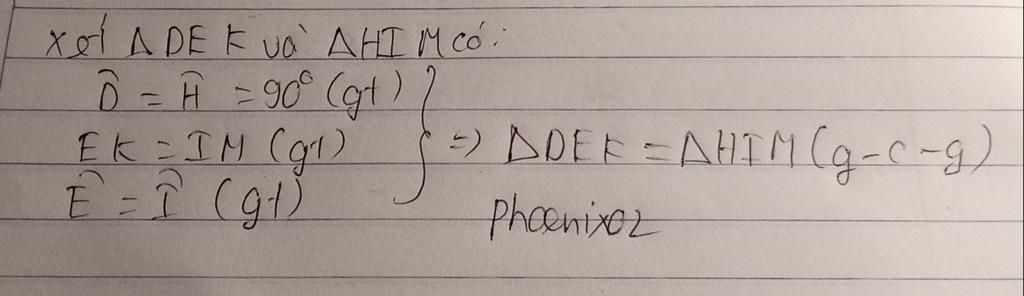 Xét ΔDEK và ΔHIM có:
D̂ = Ĥ = 90° (gt)
EK = IM (gt)
Ê = Î (gt)
=> ΔDEK = ΔHIM (g-c-g)
Phoenix02